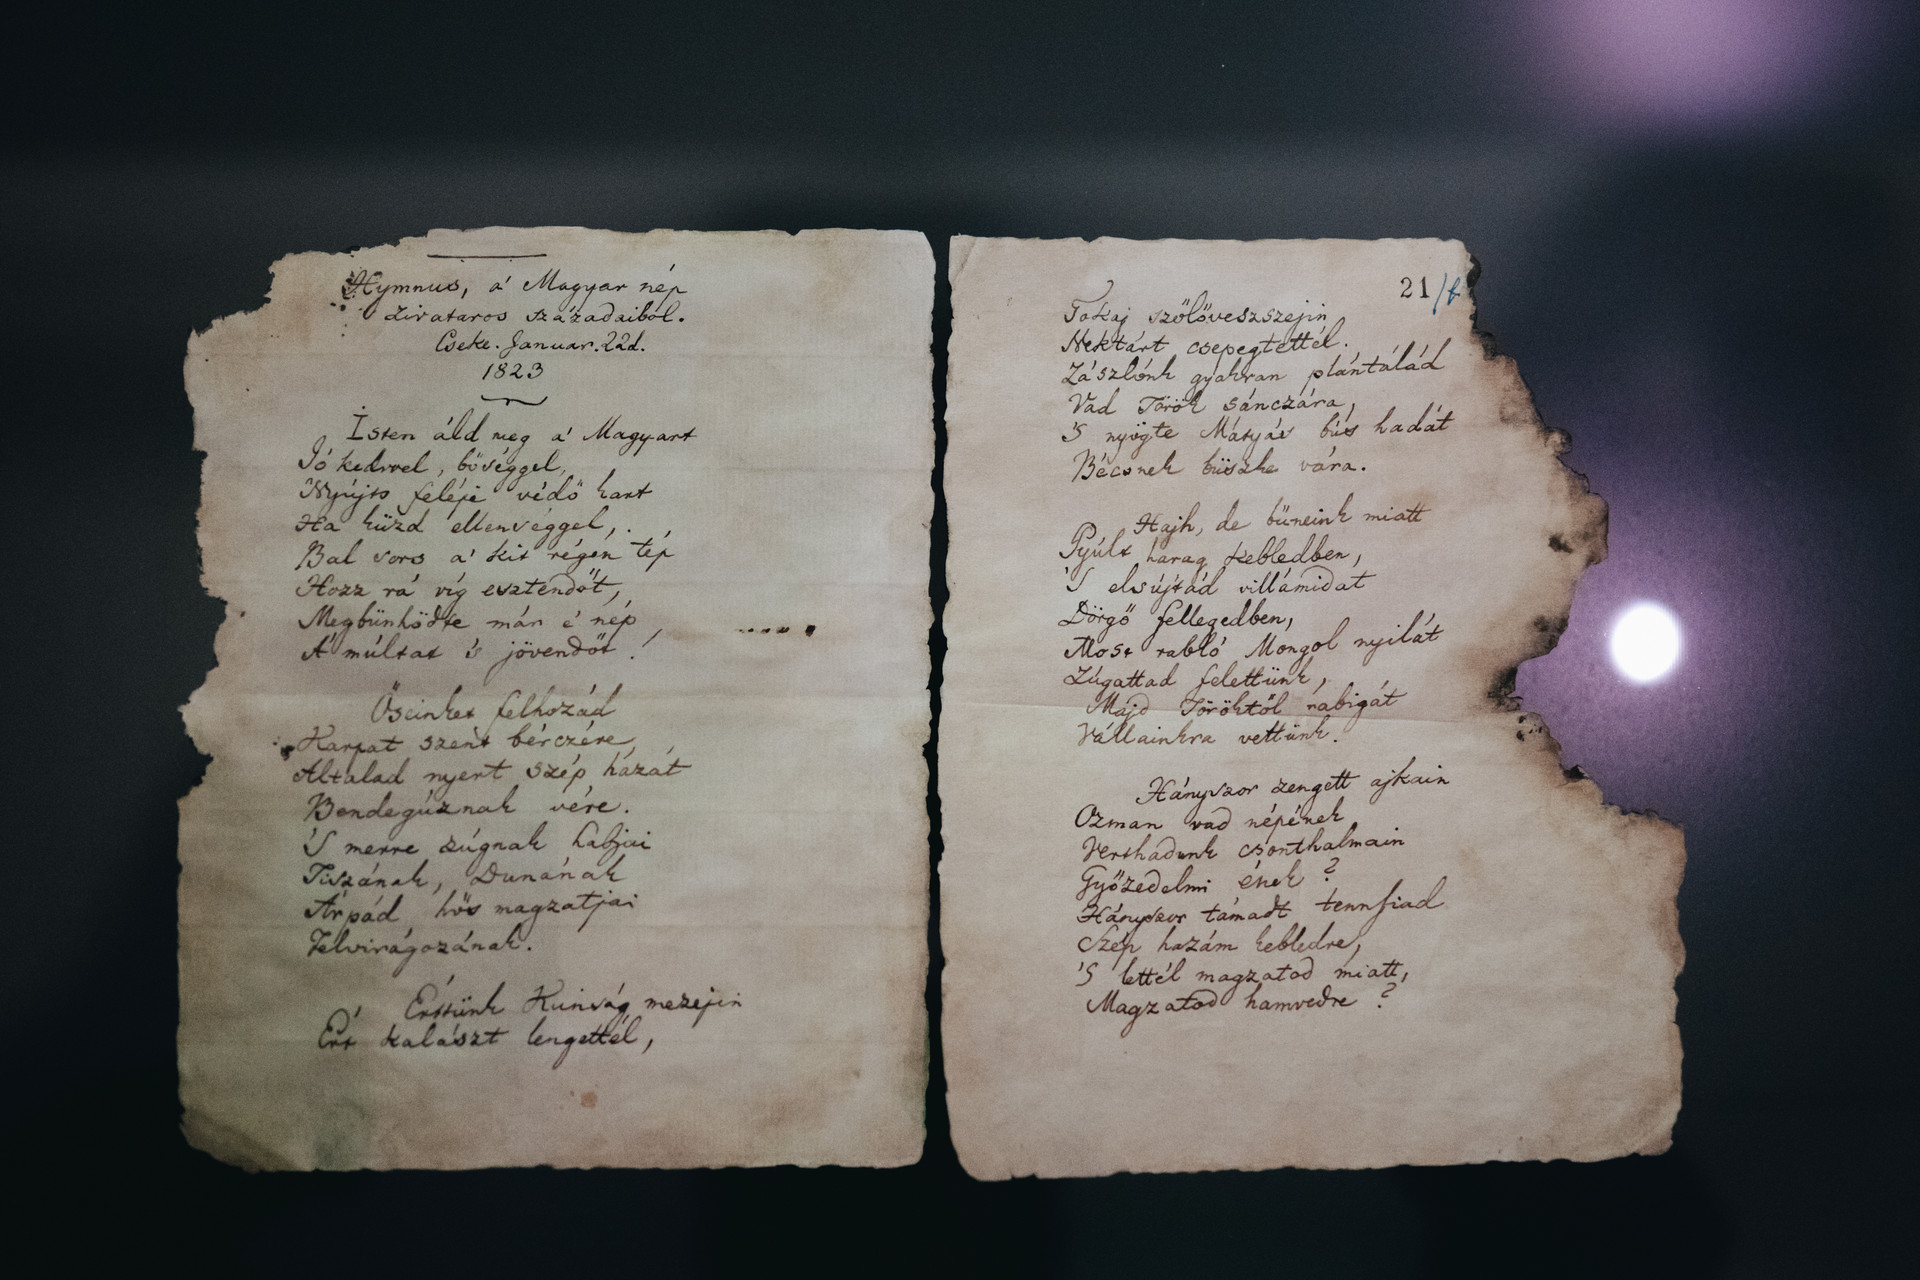 Hymnus, a' Magyar nép
zivataros századaiból.
Cseke. Januar. 22d.
1823
Isten áld meg a' Magyart
Jó kedvvel, bőséggel,
Nyújts feléje védő kart
Ha küzd ellenséggel,
Bal sors a' kit régen tép
Hozz rá víg esztendőt,
Megbünhödte már é nép
A' múltat 's jövendőt!
Őseinket felhozád
Kárpát szent bérczére,
Általad nyert szép hazát
Bendegúznak vére.
'S merre zúgnak habjai
Tiszának, Dunának
Árpád hős magzatjai
Felvirágozának.
Értünk Kunság mezejin
Ért kalászt lengettél,
21/b
Tokaj szőlővesszszejin
Nektárt csepegtettél.
Zászlónk gyakran plántálád
Vad Török sánczára,
'S nyögte Mátyás bús hadát
Bécsnek büszke vára.
Hajh, de bűneink miatt
Gyúlt harag kebledben,
'S elsújtád villámidat
Dörgő fellegedben,
Most rabló Mongol nyilát
Zúgattad felettünk,
Majd Töröktől rabigát
Vállainkra vettünk.
Hányszor zengett ajkain
Ozman vad népének
Vert hadunk csonthalmain
Győzedelmi ének?
Hányszor támadt tennfiad
Szép hazám kebledre,
'S lettél magzatod miatt,
Magzatod hamvedre?